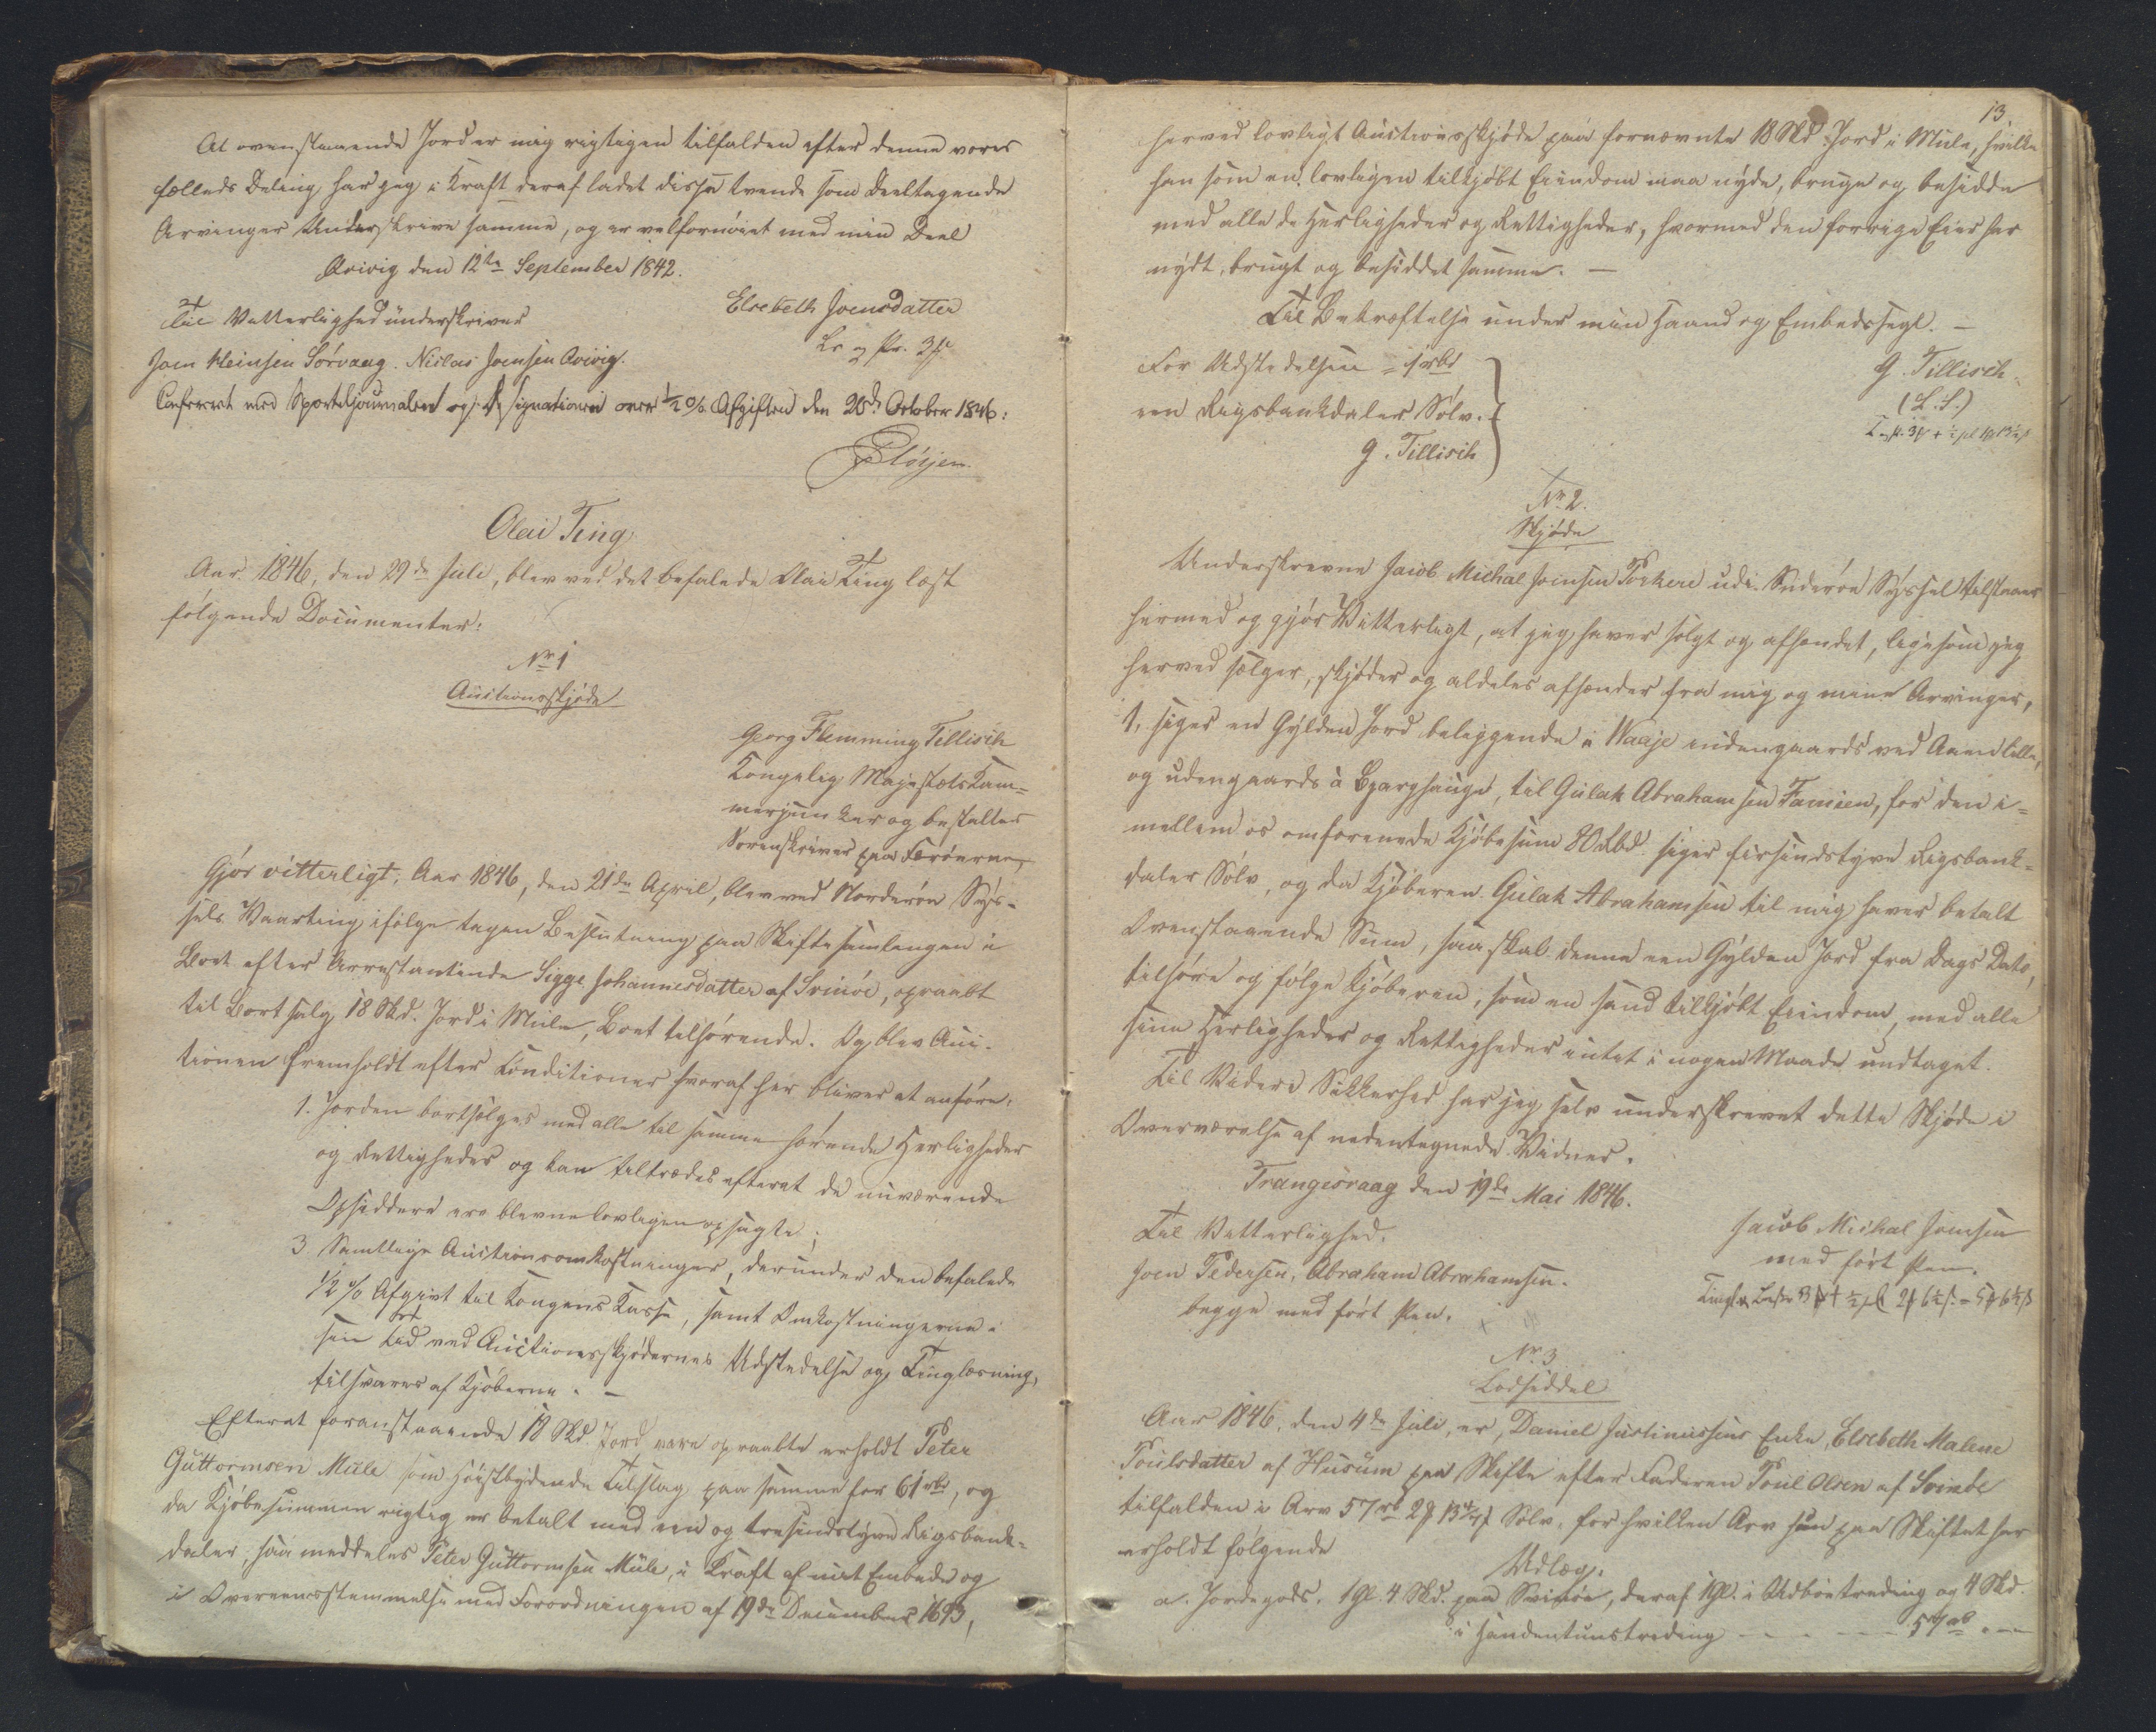 At ovenstaaende Jord er mig rigtigen tilfalden efter denne vores
fælleds Deling har jeg i Kraft deraf ladet disse tvende som deeltagende
Arvinger Underskrive samme, og er velfornöiet med min Deel
Qvivig den 12te September 1842.
Til Vitterlighed underskriver
Elsebeth Joensdatter
Joen Heinsen Sörvaag. Niclas Joensen Qvivig.
Confereret med Sporteljournalen og Designationen over ½ % Afgiften den 26de October 1846:
Olai Ting
Aar 1846, den 29de Juli, blev ved det befalede Olai Ting læst
fölgende Documenter:
No 1
Auctionsskjöde
Georg Flemming Tillisch
Kongelig Majestæts Kam-
merjunker og bestalter
Sorenskriver paa Færöerne,
Gjör vitterligt, Aar 1846, den 21de April, blev ved Norderöe Sys-
sels Vaarting ifölge tagen Beslutning paa Skiftesamlingen i
Boet efter Arrestantinde Sigge Johannesdatter af Svinöe, opraabt
til Bortsalg 18 Skd. Jord i Mule, Boet tilhörende. Og blev Auc-
tionen fremholdt efter Conditioner hvoraf her bliver at anföre:
1. Jorden bortsælges med alle til samme hörende Herligheder
og Rettigheder og kan tiltrædes efterat de nuværende
Opsiddere ere blevne lovligen opsagte;
3 Samtlige Auctionsomkostninger, derunder den befalede
1/2 % Afgivt til Kongens Kasse, samt Omkostningerne i
sin Tid ved Auctionsskjödernes Udstedelse og Tinglæsning,
tilsvares af Kjöberne. –
Efterat foranstaaende 18 Skd Jord vare opraabte erholdt Peter
Guttormsen Mule som höistbydende Tilslag paa samme for 61 rbd, og
da Kjöbesummen rigtig er betalt med een og tresindstyve Rigsbank-
daler, saa meddeles Peter Guttormsen Mule, i Kraft af mit Embede og
i Overeensstemmelse med Forordningen af 19de December 1693,
13.
herved lovligt Auctionsskjöde paa fornævnte 18 Skd Jord i Mule, hvilke
han som en lovligen tilkjöbt Eiendom maa nyde, bruge og besidde
med alle de Herligheder og Rettigheder, hvormed den forrige Eier har
nydt, brugt og besiddet samme. –
Til Bekræftelse under min Haand og Embedssegl. –
For Udstedelsen = 1 rbd
een Rigsbankdaler Sölv.
G. Tillisch
G. Tillisch
(L.S.)
No 2.
Skjöde
Underskrevne Jacob Michal Joensen Porkere udi Suderöe Syssel tilstaaer
hermed og gjör Vitterligt, at jeg haver solgt og afhændet, ligesom jeg
herved sælger, skjöder og aldeles afhænder fra mig og mine Arvinger,
1, siger en Gylden Jord beliggende i Waaje indengaards ved Aaen lille,
og udengaards i Bjarghauge, til Gulak Abrahamsen Famien, for den i-
mellem os omforenede Kjöbesum 80 Rbd. siger firsindstyve Rigsbank-
daler Sölv, og da Kjöberen Gulak Abrahamsen til mig haver betalt
Ovenstaaende Sum, saa skal denne een Gylden Jord fra Dags Dato,
tilhöre og fölge Kjöberen, som en sand tilkjöbt Eiendom, med alle
sine Herligheder og Rettigheder intet i nogen Maade undtaget.
Til Videre Sikkerhed har jeg selv underskrevet dette Skjöde i
Overværelse af nedentegnede Vidner.
Trangesvaag den 19de Mai 1846.
Til Vitterlighed.
Jacob Michal Joensen
med fört Pen.
Joen Pedersen, Abraham Abrahamsen.
begge med fört Pen.
No 3
Lodseddel
Aar 1846, den 4de Juli, er, Daniel Justinussens Enke, Elsebeth Malene
Poulsdatter af Husum paa Skifte efter Faderen Poul Olsen af Svinöe
tilfalden i Arv 57 rb 2 13 Sölv, for hvilken Arv hun paa Skiftet har
erholdt fölgende
Udlæg.
a. Jordegods. 1 gl. 4 Skd. paa Svinöe, deraf 1 gl. i Udböestreding og 4 Skd.
i Handentunstreding – – – – 57 rb –